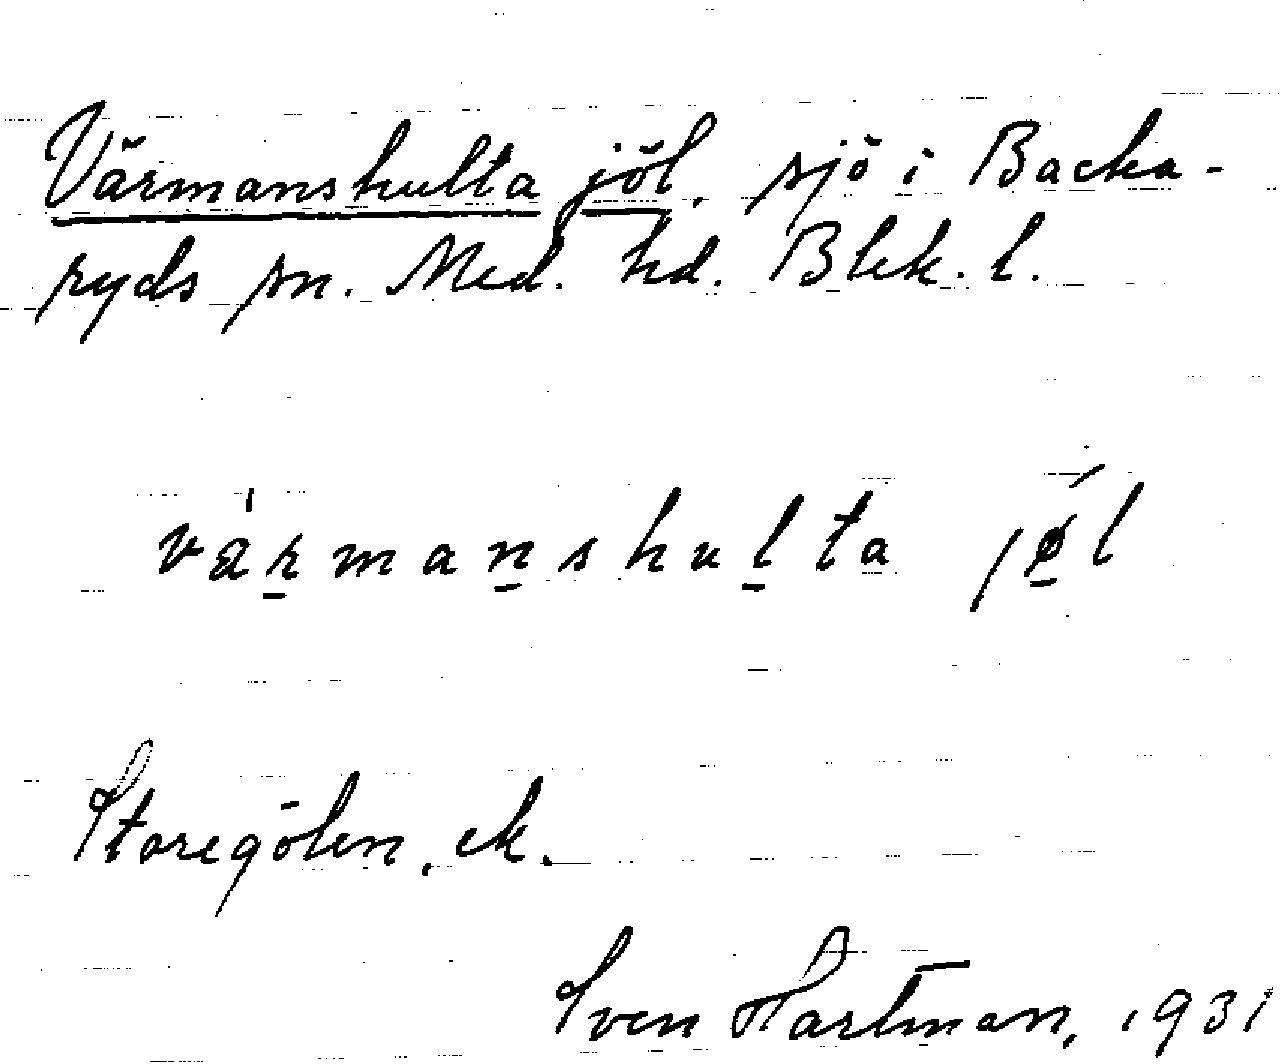 Värmanshulta jöl, sjö i Backa-
ryds sn. Med. hd. Blek. l.
värmanshulta jøl
Storegölen, ek.
Sven Hartman, 1931